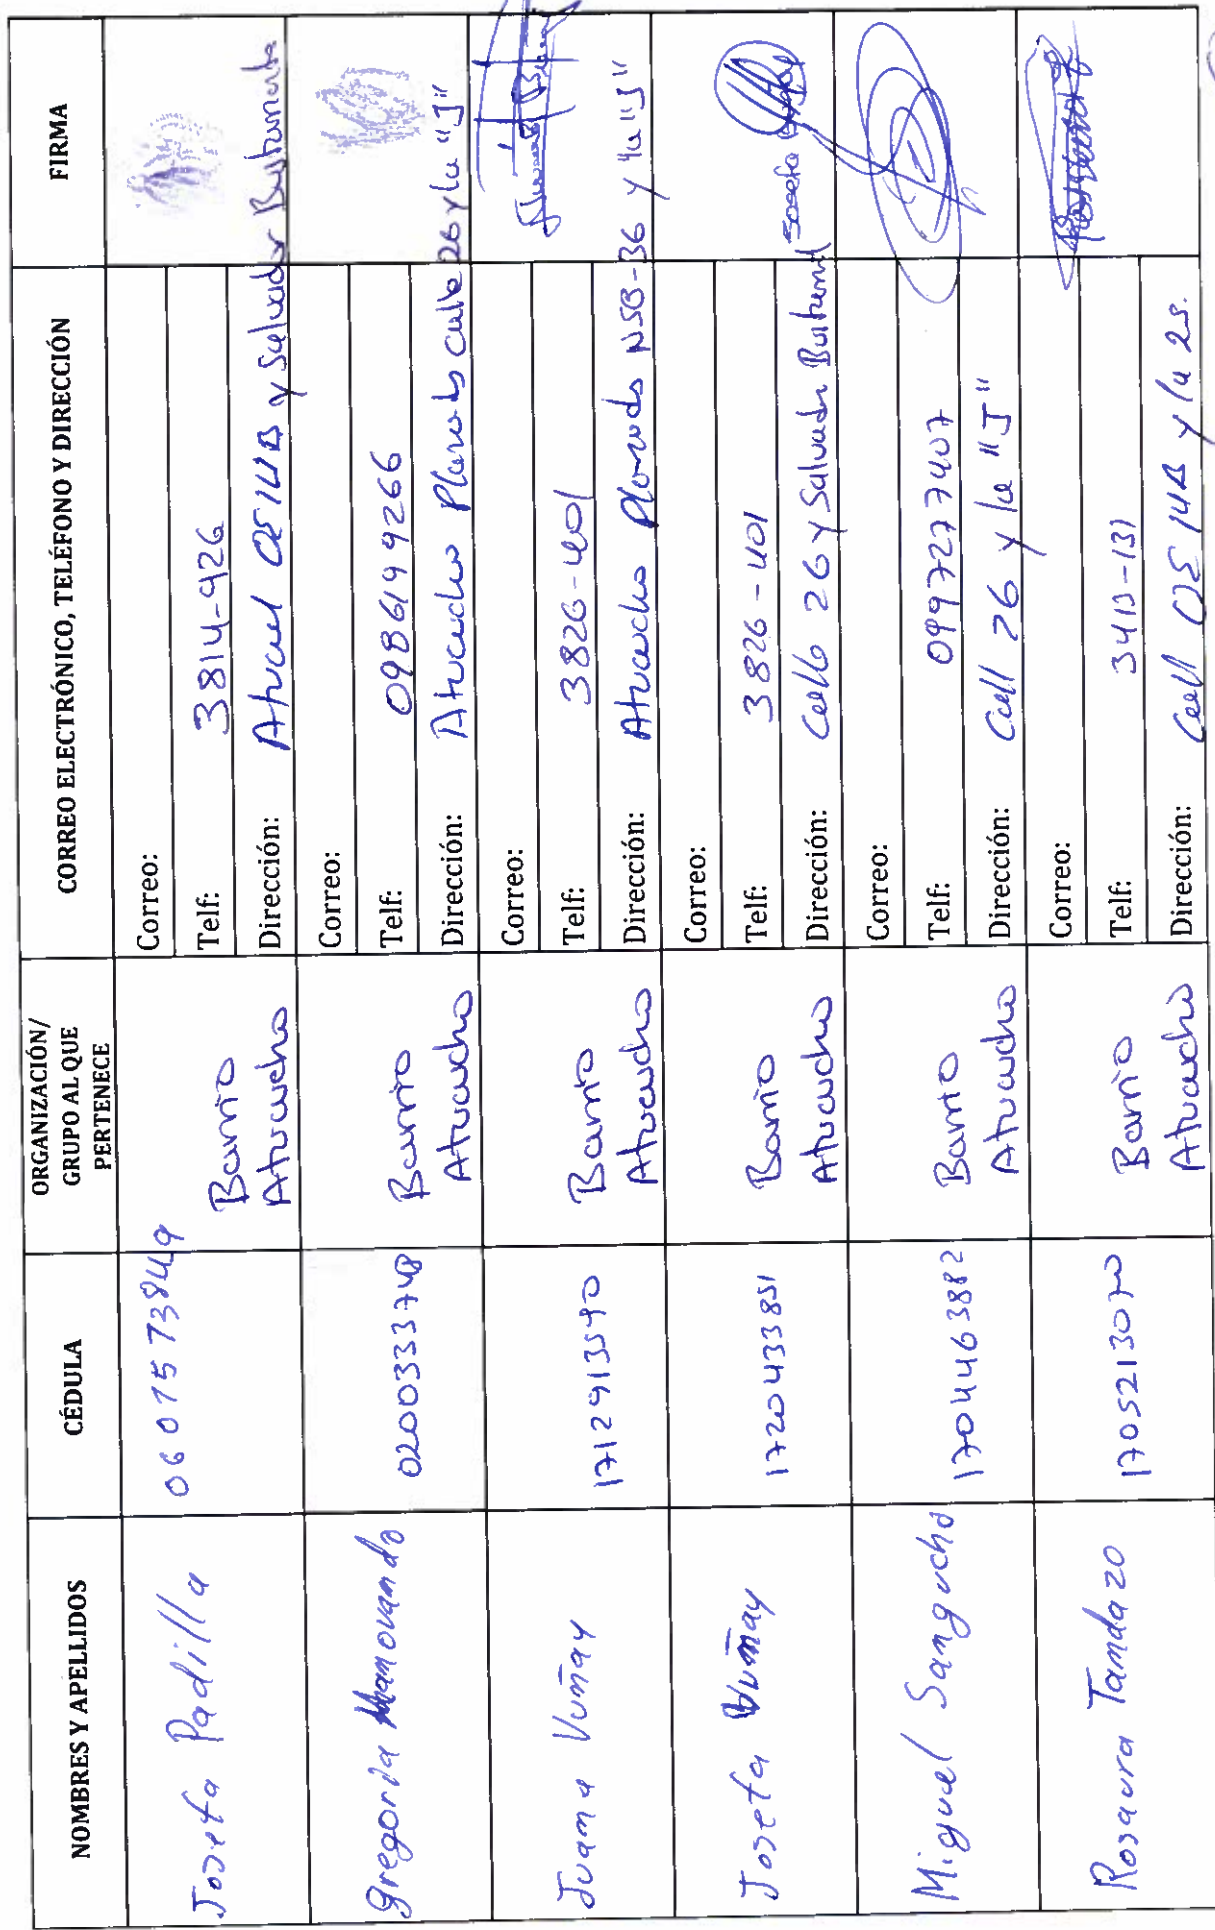 NOMBRES Y APELLIDOS
CÉDULA
ORGANIZACIÓN/
GRUPO AL QUE
PERTENECE
CORREO ELECTRÓNICO, TELÉFONO Y DIRECCIÓN
FIRMA
Josefa Padilla
0601573849
Barrio
Atucucho
Correo:
Telf: 3814-926
Dirección: Atucu OE14B y Salvador Bustamante
Gregoria Manovanda
0200333748
Barrio
Atucucho
Correo:
Telf: 0986199266
Dirección: Atucucho Planada calle 26 y la "J"
Juana Vuñay
1712913590
Barrio
Atucucho
Correo:
Telf: 3826-401
Dirección: Atucucho Planada N58-36 y la "J"
Josefa Vuñay
1720433851
Barrio
Atucucho
Correo:
Telf: 3826-401
Dirección: Calle 26 y Salvador Bustamant
Josefa
Miguel Sangucho
1704463882
Barrio
Atucucho
Correo:
Telf: 0997277407
Dirección: Call 26 y la "J"
Rosaura Tandazo
1705213070
Barrio
Atucucho
Correo:
Telf: 3413-131
Dirección: Call OE 14B y la 2s.